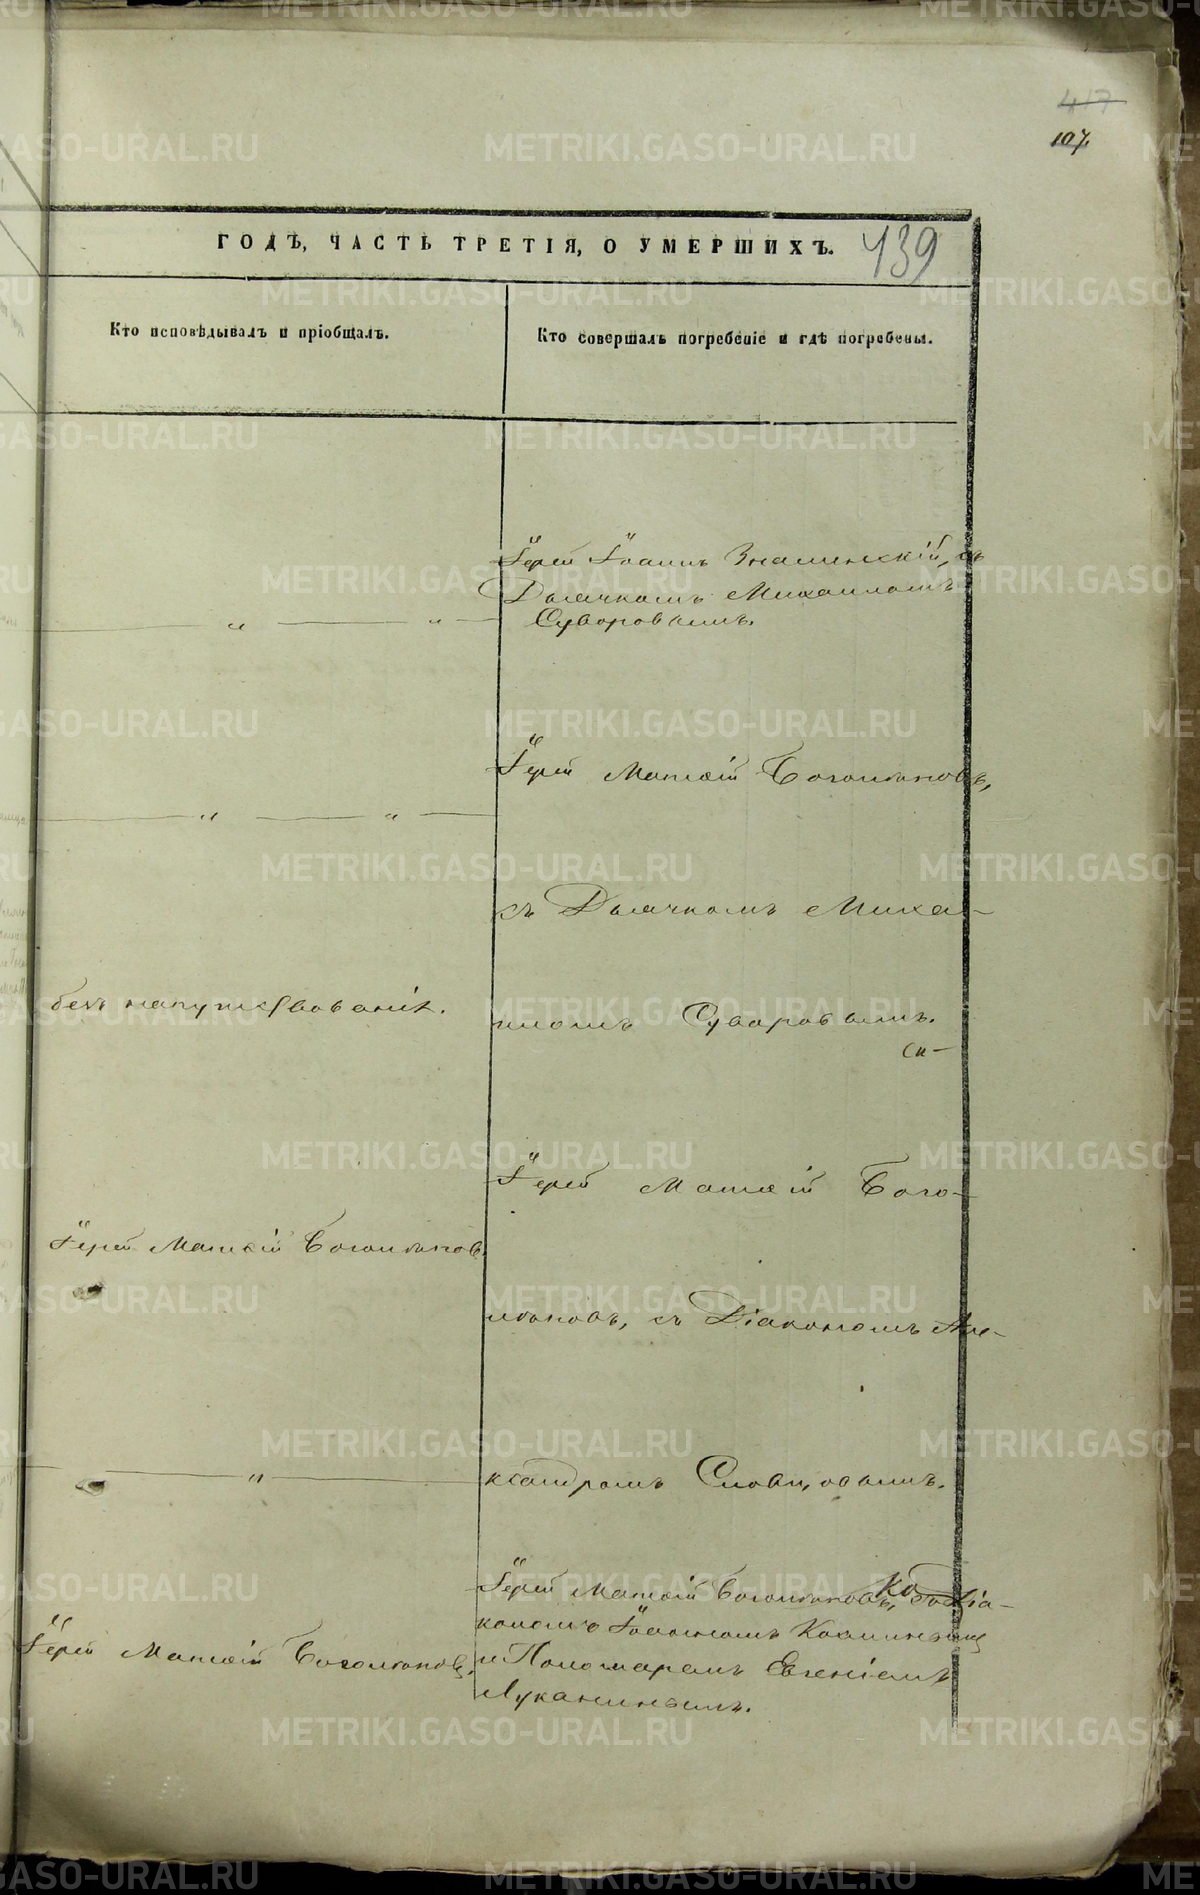 417
107.
ГОДЪ, ЧАСТЬ ТРЕТІЯ, О УМЕРШИХЪ. 439
Кто исповѣдывалъ и пріобщалъ.
Кто совершалъ погребеніе и гдѣ погребены.
Іерей Іоаннъ Знаменскій, съ
Дьячкомъ Михаиломъ
Суворовымъ.
— „ — „ —
Іерей Матѳій Боголюбовъ,
— „ — „ —
съ Дьячкомъ Миха-
без напутствованія.
иломъ Суворовымъ.
Іерей Матѳій Бого-
Іерей Матѳій Боголюбовъ
любовъ, съ Діакономъ Але-
— „ —
ксандромъ Словцовымъ.
Іерей Матѳій Боголюбовъ, со Діа-
кономъ Іоанномъ
Іерей Матѳій Боголюбовъ,
и Пономаремъ Евгеніемъ
Луканинымъ.
METRIKI.GASO-URAL.RU